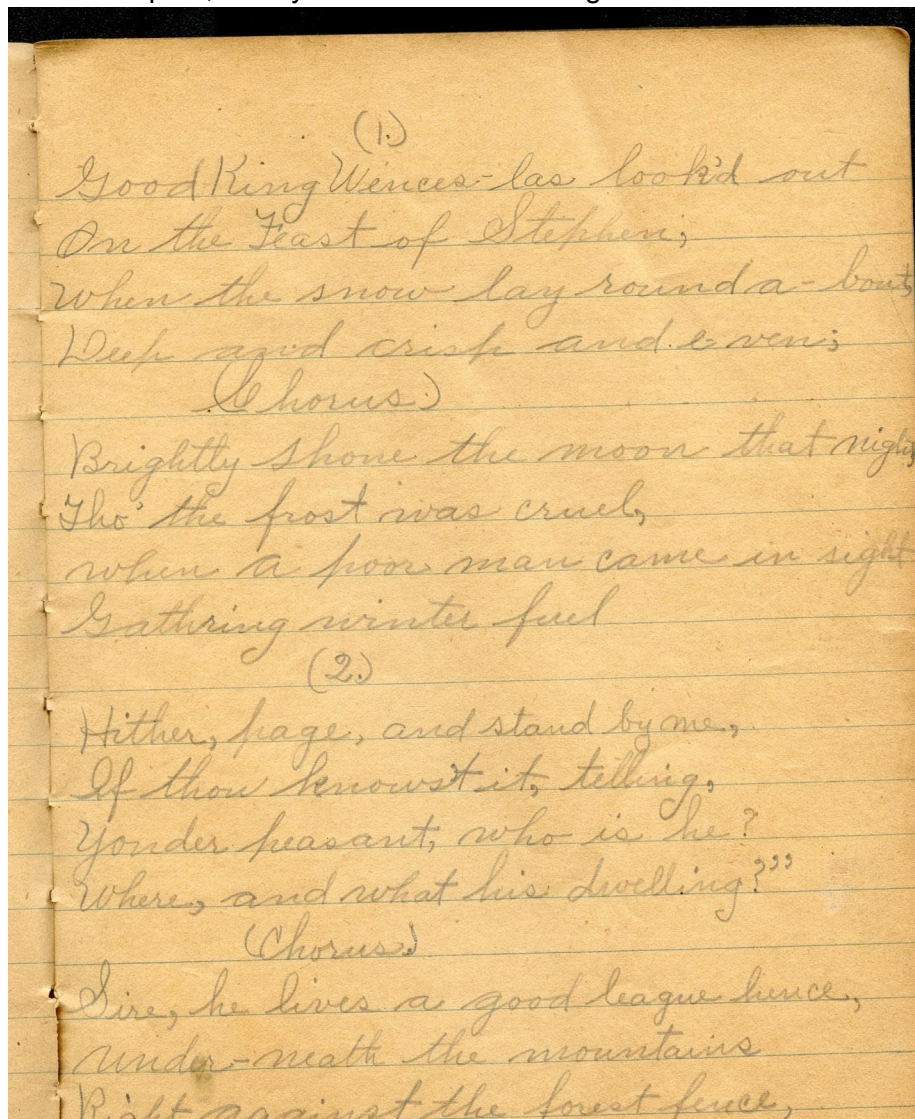 (1.)
Good King Wences-las look'd out
On the Feast of Stephen,
When the snow lay round a-bout,
Deep and crisp and e-ven;
(Chorus.)
Brightly shone the moon that night,
Tho' the frost was cruel,
when a poor man came in sight
Gathring winter fuel
(2.)
Hither, page, and stand by me,
If thou knowst it, telling,
Yonder peasant, who is he?
Where, and what his dwelling?"
(Chorus.)
Sire, he lives a good league hence,
under-neath the mountains
Right against the forest fence,